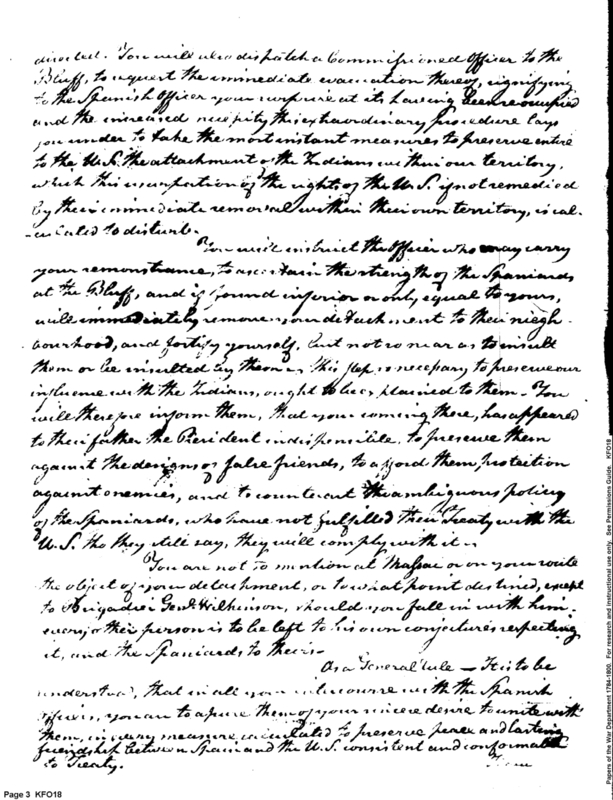 directed. You will also dispatch a Commissioned Officer to the
Bluff, to request the immediate evacuation thereof, signifying
to the Spanish Officer your surprise at its having been reoccupied
and the increased necessity this extraordinary procedure lays
you under to take the most instant measures to preserve entire
to the U.S. the attachment of the Indians within our territory,
which this usurpation of the rights of the U.S. if not remedied
by their immediate removal within their own territory, is cal-
-culated to disturb.
You will instruct the officer who may carry
your remonstrance, to ascertain the strength of the Spaniards
at the Bluff, and if found inferior or only equal to yours,
will immediately remove your detachment to their neigh
bourhood, and fortify yourself, but not so near as to insult
them or be insulted by them. This step, so necessary to preserve our
influence with the Indians, ought to be explained to them. You
will therefore inform them, that your coming there, has appeared
to their father the President indispensible, to preserve them
against the designs of false friends, to afford them protection
against enemies, and to counteract the ambiguous policy
of the Spaniards, who have not fulfilled their Treaty with the
U.S. tho they still say, they will comply with it.
You are not to mention at Massac or on your route
the object of your detachment, or to what point destined, except
to Brigadier Genl. Wilkinson, should you fall in with him.
every other person is to be left to his own conjectures respecting
it, and the Spaniards to theirs.
As a General rule - It is to be
understood, that in all your intercourse with the Spanish
officers, you are to assure them of your sincere desire to unite with
them, in every measure calculated to preserve peace and lasting
friendship between Spain and the U.S. consistent and conformable
to Treaty.
Page 3 KFO18
Papers of the War Department 1784-1800. For research and instructional use only. See Permissions Guide. KFO18